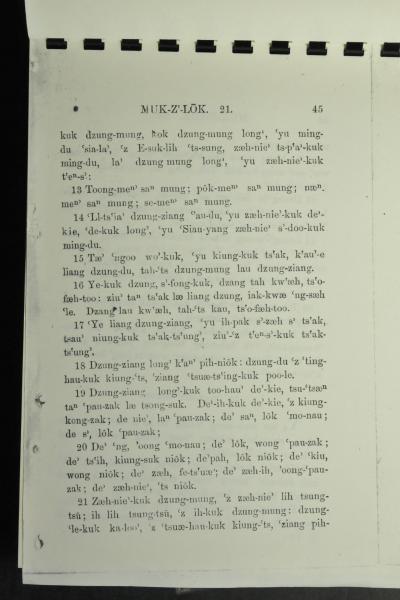 MUK-Z'-LŌK. 21. 45
kuk dzung-mung, kok dzung-mung long', 'yu ming-
du 'sia-la', 'z E-suk-lih 'ts-sung, zæh-nie' ts-p'a'-kuk
ming-du, la' dzung mung long', 'yu zæh-nie'-kuk
13 Toong-men' san mung; pōk-men' san mung; næn.
men' san mung; se-men' san mung.
14 'Ll-ts'ia' dzung-ziang 'au-du, 'yu zæh-nie'-kuk de'-
kie, 'de-kuk long', 'yu 'Siau-yang zæh-nie' s'-doo-kuk
ming-du.
15 Tæ' 'ngoo wo'-kuk, 'yu kiung-kuk ts'ak, k'au'-e
liang dzung-du, tah-'ts dzung-mung lau dzung-ziang.
16 Ye-kuk dzung, s'-fong-kuk, dzang tah kw'æh, ts'o-
fæh-too: ziu' tan ts'ak læ liang dzung, iak-kwæ 'ng-sæh
'le. Dzang lau kw'æh, tah-'ts kau, ts'o-fæh-too.
17 'Ye liang dzung-ziang, 'yu ih-pak s'-zæh s' ts'ak,
tsau' niung-kuk ts'ak-ts'ung', ziu'-'z t'en-s'-kuk ts'ak-
ts'ung'.
18 Dzung-ziang long' k'an' pih-niōk: dzung-du 'z 'ting-
hau-kuk kiung-'ts, 'ziang 'tsuæ-ts'ing-kuk poo-le.
19 Dzung-ziang long'-kuk too-hau' de'-kie, tsu-'tsæn
tan 'pau-zak læ tsong-suk. De'-ih-kuk de'-kie, 'z kiung-
kong-zak; de nie', lan 'pau-zak; de' san, lōk 'mo-nau;
de s', lōk 'pau-zak;
20 De' 'ng, 'oong 'mo-nau; de' lōk, wong 'pau-zak;
de' ts'ih, kiung-suk niōk; de'pah, lōk niōk; de' 'kiu,
wong niōk; de' zæh, fe-ts'uæ'; de' zæh-ih, 'oong-'pau-
zak; de' zæh-nie', 'ts niōk.
21 Zæh-nie'-kuk dzung-mung, 'z zæh-nie' lih tsung-
tsū; ih lih tsung-tsū, 'z ih-kuk dzung-mung: dzung-
'le-kuk ka-loo', 'z 'tsuæ-hau-kuk kiung-'ts, 'ziang pih-